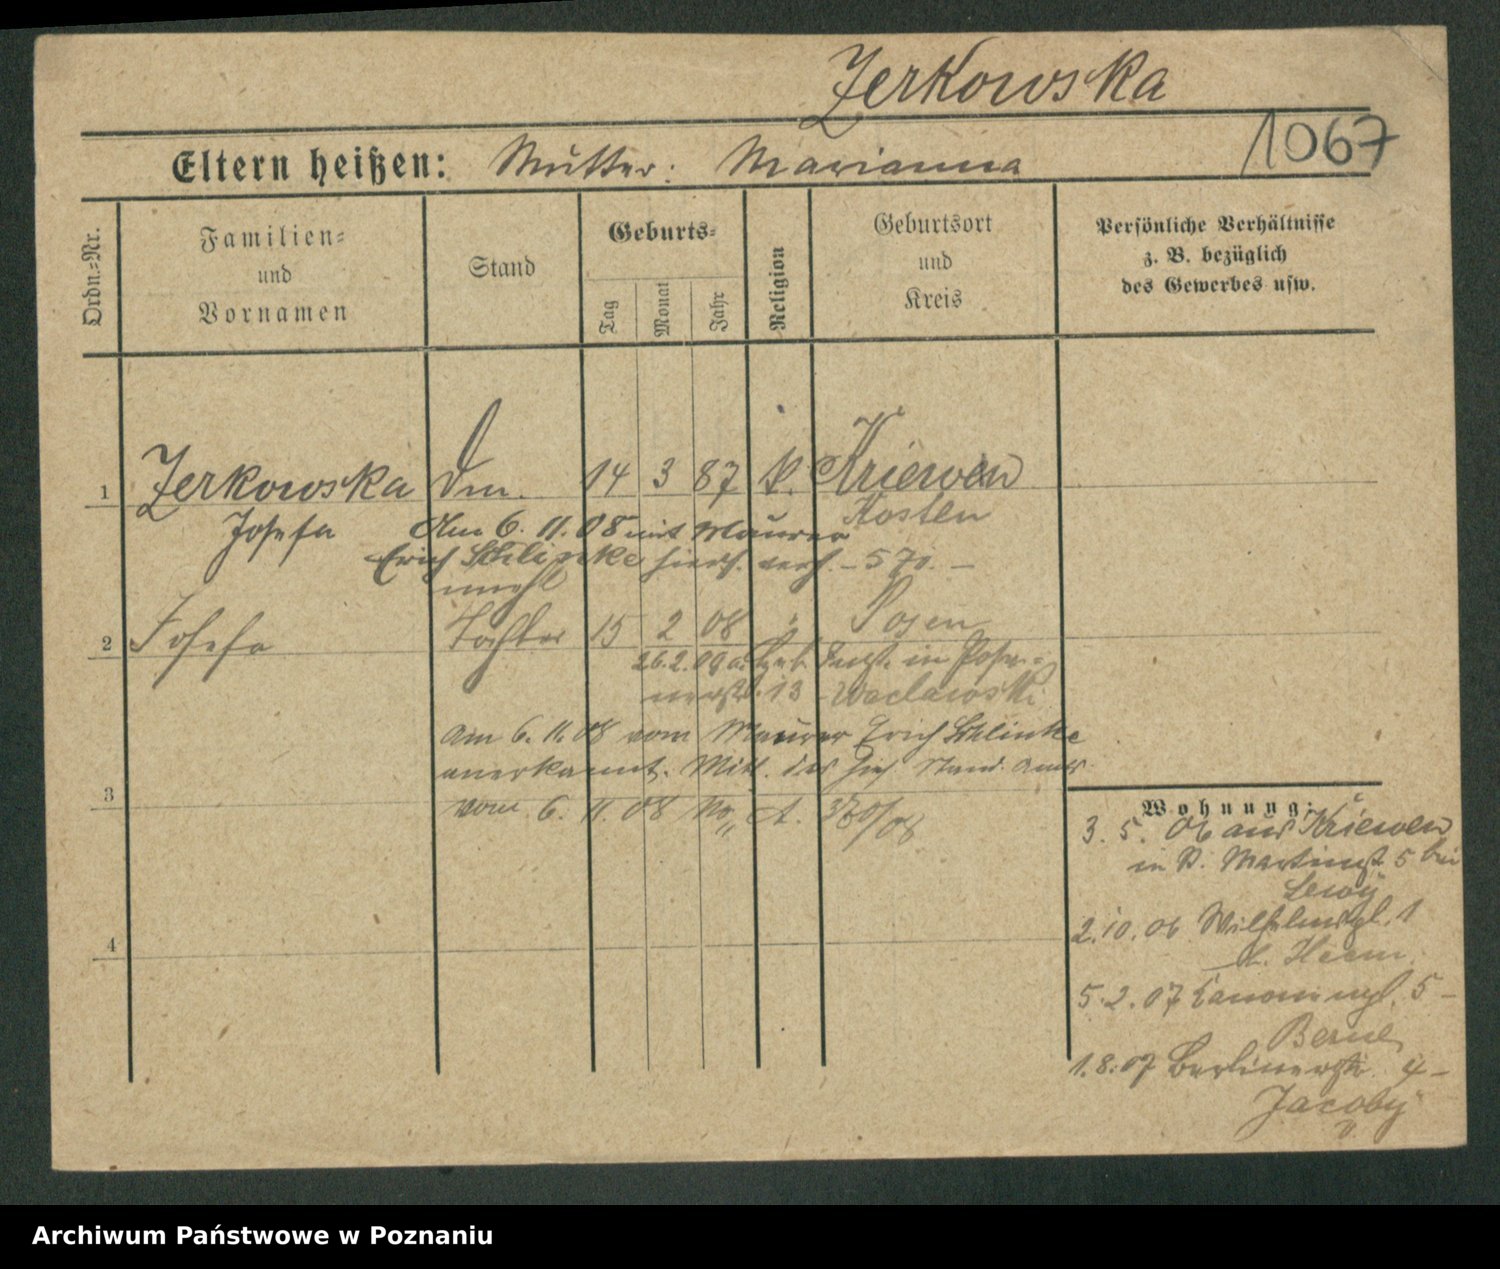 Zerkowska
1067
Eltern heißen: Mutter: Marianna
Ordn.-Nr.
Familien-
und
Vornamen
Stand
Geburts-
Tag
Monat
Jahr
Religion
Geburtsort
und
Kreis
Persönliche Verhältnisse
z. B. bezüglich
des Gewerbes usw.
1 Zerkowska 14 3 87 k. Kriewen
Kosten
Josefa Am 6. 11. 08 mit Maurer
Erich Schlinke verh. - 570. -
unehl
2 Josefa Tochter 15 2 08 " Posen
26.2.09 in
13 Waclawski
am 6. 11. 08 vom Maurer Erich Schlinke
anerkannt. Mitt. des Stand. Amts
3 vom 6. 11. 08 No
4
Wohnung:
3. 5. 06 aus Kriewen
in St. Martinst. 5 bei
Lewy
2. 10. 06 Wilhelmspl. 1
5. 2. 07 5 -
1. 8. 07 Berlinerstr. 4 -
Jacoby
Archiwum Państwowe w Poznaniu